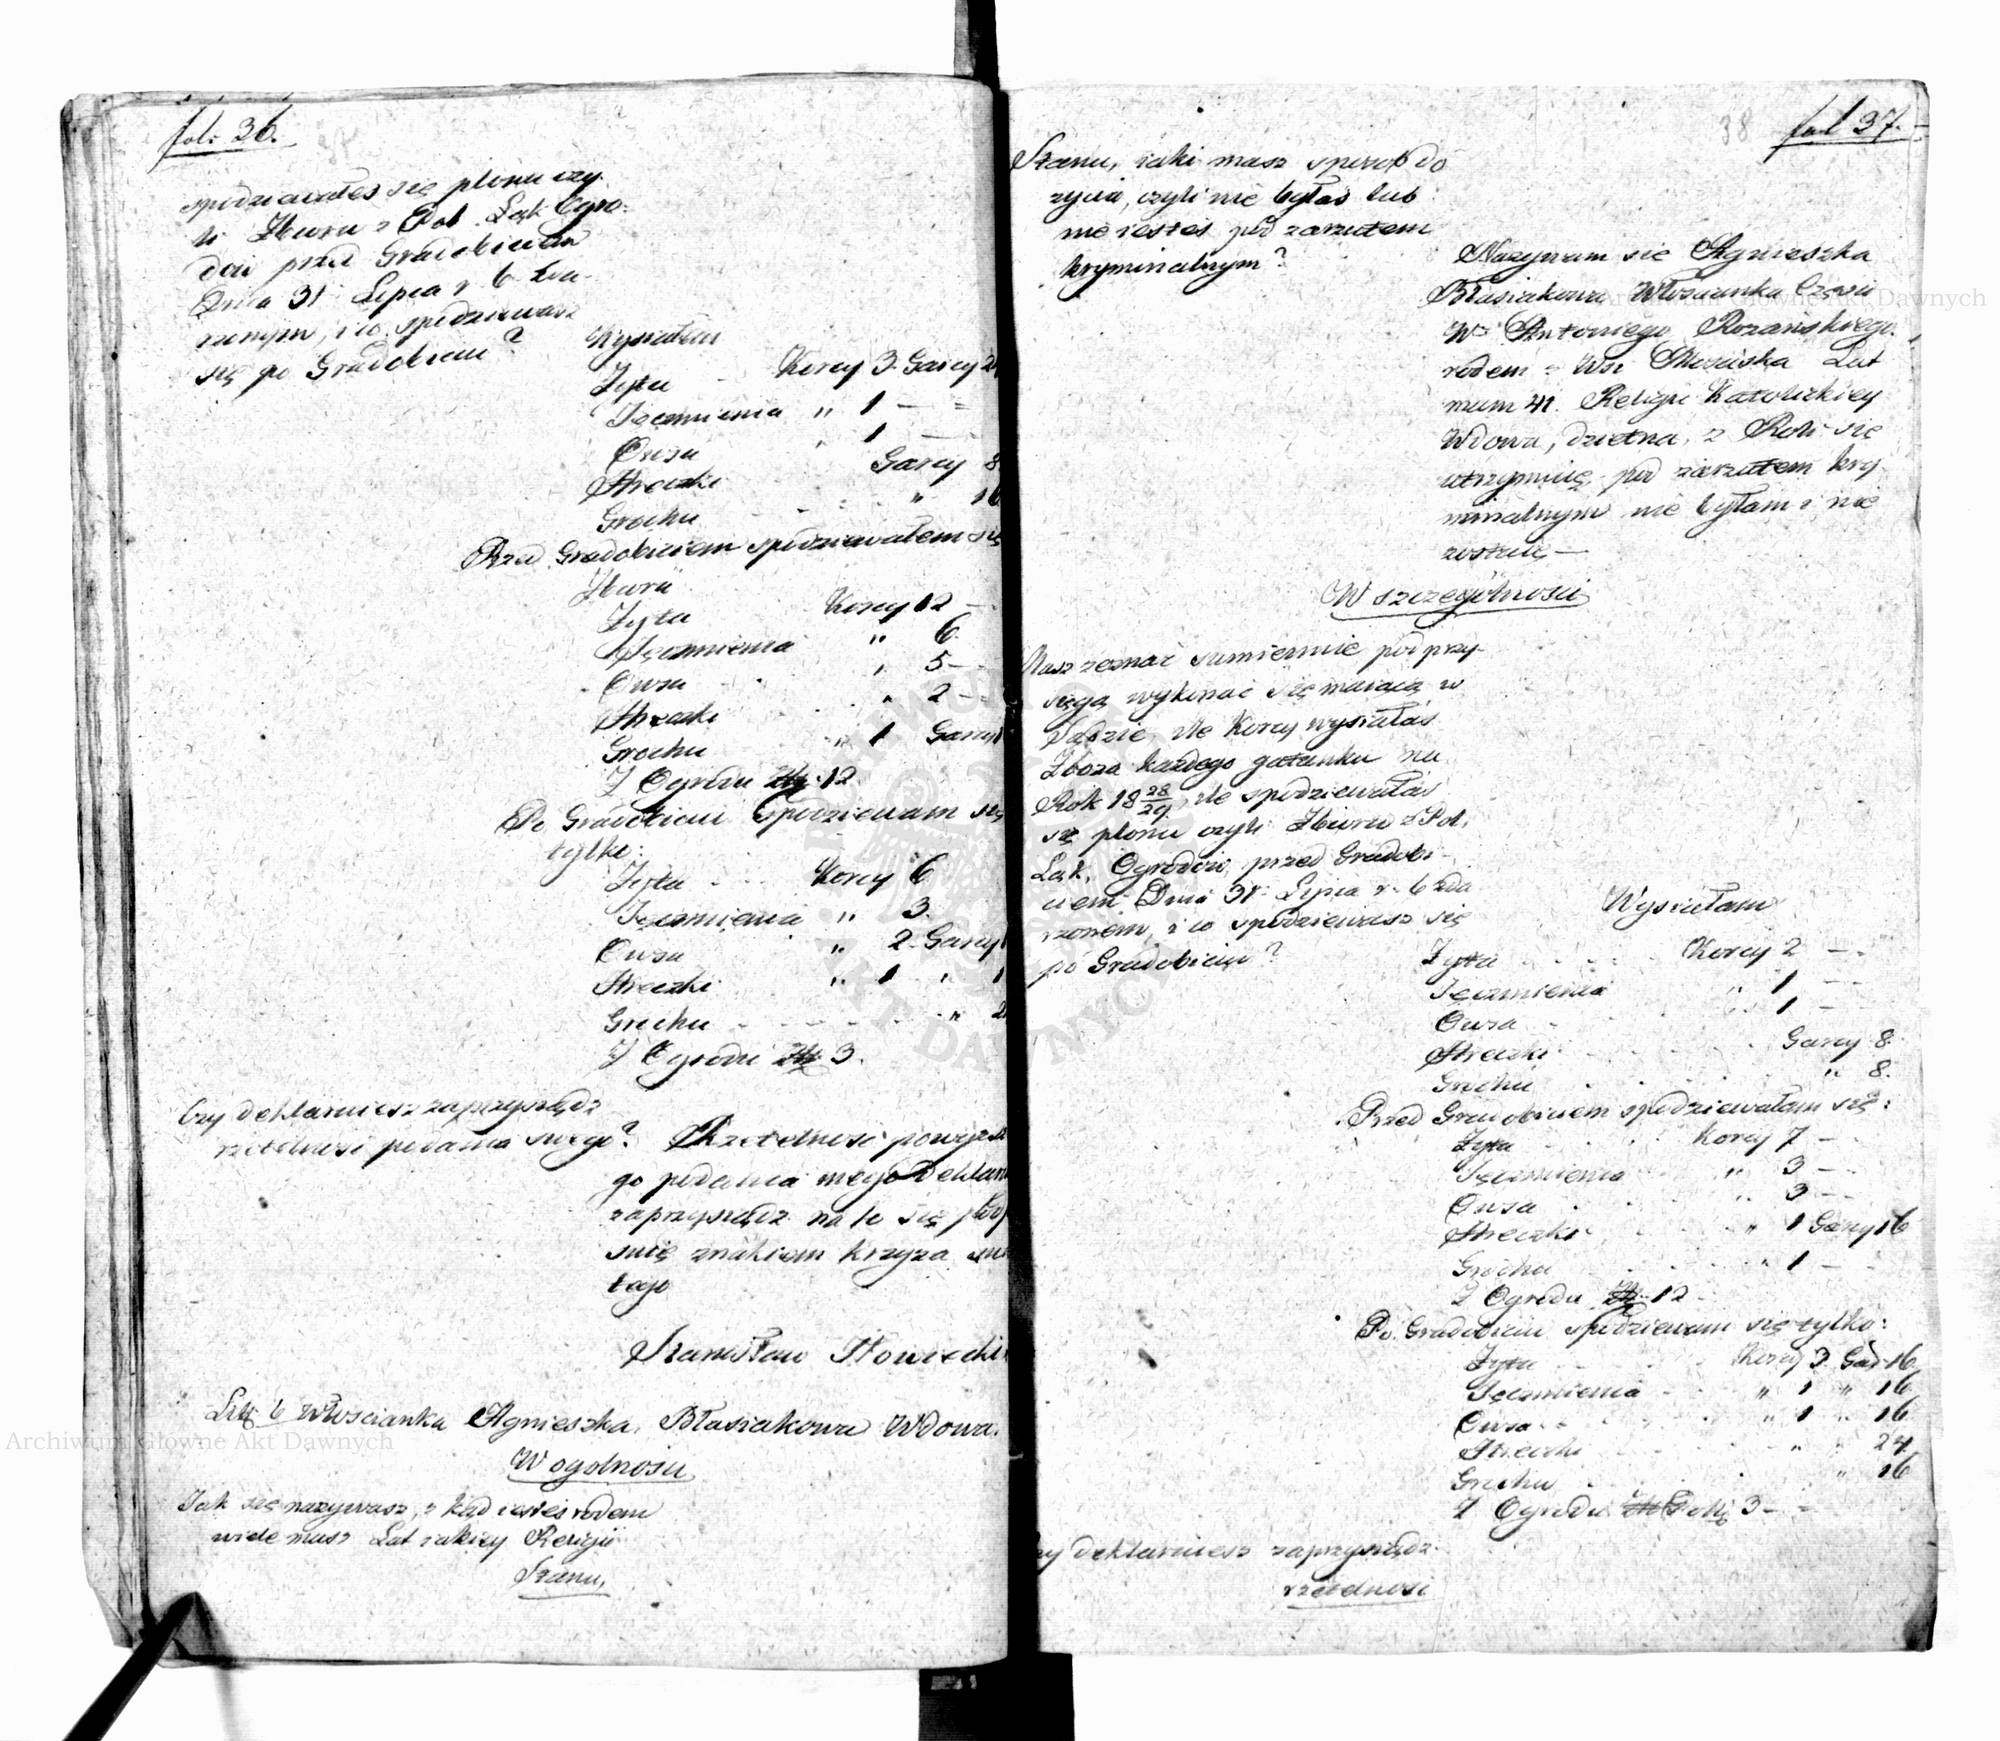 fol: 36.
spodziewałeś się plonu czy-
li Zbioru z Pol Łąk Ogro-
dów przed Gradobiciem
Dnia 31 Lipca r. b. zda-
rzonym, i co spodziewasz
się po Gradobiciu?
Wysiałem
Żyta Korcy 3. Garcy 2
Jęczmienia " 1 — =
Owsa 1 —
Hreczki Garcy 8
Grochu " 16
Przed Gradobiciem spodziewałem się
Zbioru
Żyta Korcy 12 —
Jęczmienia " 6.
Owsa " 5 —
Hreczki " 2 —
Grochu " 1 Garcy 1
Z Ogrodu Złp. 12.
Po Gradobiciu spodziewam się
tylko:
Żyta Korcy 6
Jęczmienia " 3.
Owsa " 2. Garcy 1
Hreczki " 1 " 1
Grochu " 2
Z Ogrodu Złp 3.
Czy deklarujesz zaprzysiądz
rzetelność podania swego?
Rzetelność powyższe
go podania mego deklaru
zaprzysiądz na to się podp
suię znakiem krzyża świę
tego
Stanisław Nowicki
Lit: b Włościanka Agnieszka Błasiakowa Wdowa.
W ogolnosci
Jak się nazywasz, z kąd iesteś rodem
wiele masz Lat iakiey Religii
Stanu,
38
fol 37.
Stanu, iaki masz sposob do
życia, czyli nie byłaś lub
nie iesteś pod zarzutem
kryminalnym?
Nazywam się Agnieszka
Błasiakowa Włościanka Części
Wo Antoniego Rozańskiego.
rodem z Wsi Lat
mam 41. Religii Katolickiey
Wdowa, dzietna, z Roli się
utrzymuię, pod zarzutem kry
minalnym nie byłam i nie
zostaię —
W szczególnosci
Masz zeznać sumiennie pod przy-
sięgą wykonać się maiącą w
Sądzie, ile Korcy wysiałaś
Zboża każdego gatunku na
Rok 18 28/29, ile spodziewałaś
się plonu czyli Zbioru z Pol,
Łąk, Ogrodów, przed Gradobi-
ciem Dnia 31. Lipca r. b zda
rzonem, i co spodziewasz się
po Gradobiciu?
Wysiałam
Żyta Korcy 2 —
Jęczmienia " 1 —
Owsa " 1 —
Hreczki Garcy 8
Grochu " 8.
Przed Gradobiciem spodziewałam się:
Żyta Korcy 7 —
Jęczmienia " 3 —
Owsa " 3 —
Hreczki " 1 Garcy 16
Grochu " 1 —
Z Ogrodu Złp. 12
Po Gradobiciu spodziewam się tylko:
Żyta Korcy 3 Gar 16
Jęczmienia " 1 " 16
Owsa " 1 " 16
Hreczki " 24
Grochu " 16
Z Ogrodu 3 —
zy deklarujesz zaprzysiądz
rzetelnosć
Archiwum Główne Akt Dawnych
Archiwum Główne Akt Dawnych